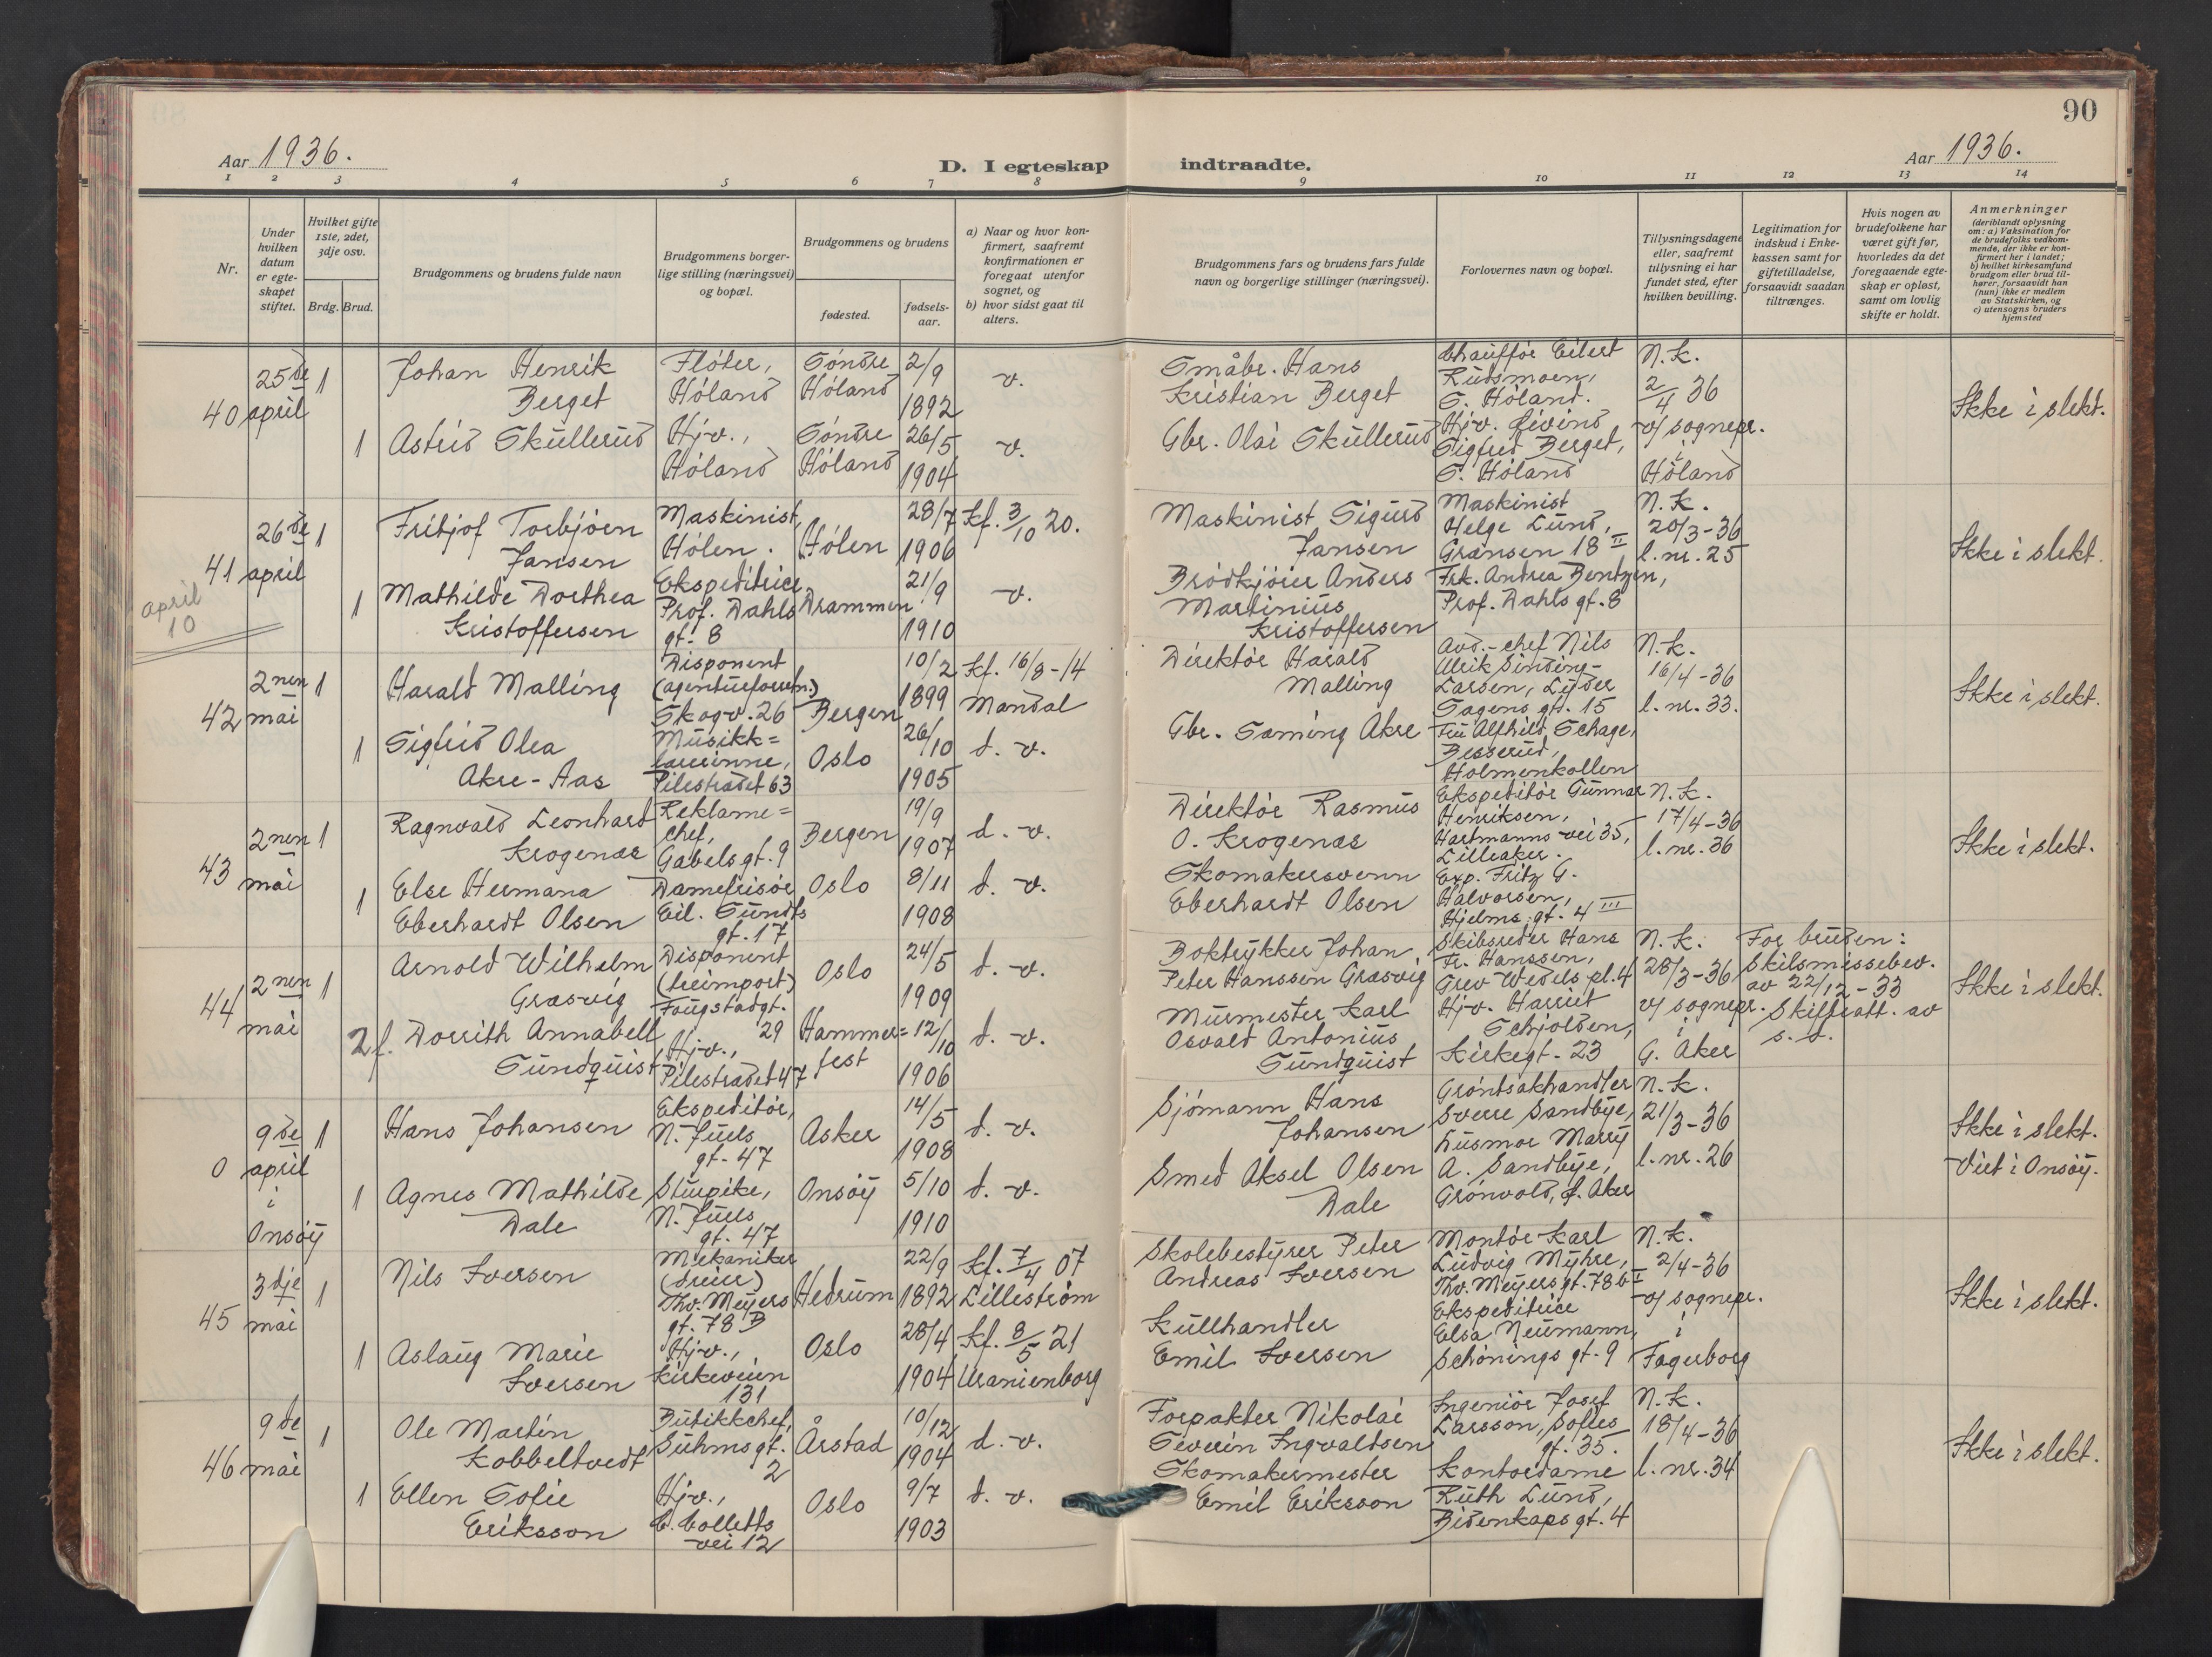 90
Aar 1936.
D. I egteskap indtraadte.
Aar 1936.
1 2 3 4 5 6 7 8 9 10 11 12 13 14
Nr.
Under hvilken datum er egteskapet stiftet.
Hvilket gifte 1ste, 2det, 3dje osv.
Brdg. Brud.
Brudgommens og brudens fulde navn
Brudgommens borgerlige stilling (næringsvei) og bopæl.
Brudgommens og brudens
fødested.
fødselsaar.
a) Naar og hvor konfirmert, saafremt konfirmationen er foregaat utenfor sognet, og
b) hvor sidst gaat til alters.
Brudgommens fars og brudens fars fulde navn og borgerlige stillinger (næringsvei).
Forlovernes navn og bopæl.
Tillysningsdagene eller, saafremt tillysning ei har fundet sted, efter hvilken bevilling.
Legitimation for indskud i Enkekassen samt for giftetilladelse, forsaavidt saadan tiltrænges.
Hvis nogen av brudefolkene har været gift før, hvorledes da det foregaaende egteskap er opløst, samt om lovlig skifte er holdt.
Anmerkninger
(deriblandt oplysning om: a) Vaksination for de brudefolks vedkommende, der ikke er konfirmert her i landet;
b) hvilket kirkesamfund brudgom eller brud tilhører, forsaavidt han (hun) ikke er medlem av Statskirken, og
c) utensogns bruders hjemsted
40 25de april
1 Johan Henrik Berget
Fløter, Høland
Søndre Høland
2/9 1892
v.
Småbr. Hans Kristian Berget
Chauffør Eilert Rudsmoen, S. Høland.
N.K. 2/4 36 v/ sognepr. i Høland
Ikke i slekt.
1 Astrid Skullerud
Hjv., Høland
Søndre Høland
26/5 1904
v.
Gbr. Olai Skullerud
Hjv. Eivind Sigfred Berget, S. Høland
41 26de april
1 Fritjof Torbjørn Jansen
Maskinist, Hølen.
Hølen
28/7 1906
Kf. 3/10 20.
Maskinist Sigurd Jansen
Maskinist Helge Lund, Grænsen 18 II
N.K. 20/3-36 l. nr. 25
Ikke i slekt.
1 Mathilde Dorthea Kristoffersen
Ekspeditrice Prof. Dahls gt. 8
Drammen
21/9 1910
v.
Brødkjører Anders Martinius Kristoffersen
Frk. Andrea Bentzen, Prof. Dahls gt. 8
april 10
42 2nen mai
1 Harald Malling
Disponent (agenturforretn.) Skogv. 26
Bergen
10/2 1899
Kf. 16/8-14 Mandal
Direktør Harald Malling
Avd.-chef Nils Ulrik Sinding-Larsen, Lyder Sagens gt. 15
N.K. 16/4-36 l. nr. 33.
Ikke i slekt.
1 Sigfrid Olea Akre-Aas
Musikk=lærerinne, Pilestrædet 63
Oslo
26/10 1905
d. v.
Gbr. Sæming Akre
Fru Alfhild Schage, Besserud, Holmenkollen
43 2nen mai
1 Ragnvald Leonhard Krogenæs
Reklame=chef, Gabels gt. 9
Bergen
19/9 1907
d. v.
Direktør Rasmus O. Krogenæs
Ekspeditør Gunnar Henriksen, Hartmanns vei 35, Lilleaker.
N.K. 17/4-36 l. nr. 36
Ikke i slekt.
1 Else Hermana Eberhardt Olsen
Damefrisør, Eil. Sundts gt. 17
Oslo
8/11 1908
d. v.
Skomakersvenn Eberhardt Olsen
Exp. Fritz G. Halvorsen, Hjelms gt. 4 III
44 2nen mai
1 Arnold Wilhelm Græsvig
Disponent (treimport) Faugstadgt. 29
Oslo
24/5 1909
d. v.
Boktrykker Johan Peter Hanssen Græsvig
Skibsreder Hans Fr. Hanssen, Grev Wedels pl. 4
N.K. 28/3-36 v/ sognepr. i G. Aker
For bruden: Skilsmissebev. av 22/12-33 Skifteatt. av s. d.
Ikke i slekt.
2 f. Dorrith Annabell Sundquist
Hjv., Pilestrædet 47
Hammer=fest
12/10 1906
d. v.
Murmester Karl Osvald Antonius Sundquist
Hjv. Harriet Schjolden, Kirkegt. 23
0 9de april i Onsøy
1 Hans Johansen
Ekspeditør, N. Juels gt. 47
Asker
14/5 1908
d. v.
Sjømann Hans Johansen
Grøntsakhandler Sverre Sandbye, Husmor Marry A. Sandbye, Grønvold, Ø. Aker
N.K. 21/3-36 l. nr. 26
Ikke i slekt. Viet i Onsøy.
1 Agnes Mathilde Dale
Stuepike, N. Juels gt. 47
Onsøy
5/10 1910
d. v.
Smed Aksel Olsen Dale
45 3dje mai
1 Nils Iversen
Mekaniker (dreier) Thv. Meyers gt. 78 B
Hedrum
22/9 1892
Kf. 7/4 07 Lillestrøm
Skolebestyrer Peter Andreas Iversen
Montør Karl Ludvig Myhre, Thv. Meyers gt. 78 b I
N.K. 2/4-36 v/ sognepr. i Fagerborg
Ikke i slekt.
1 Aslaug Marie Iversen
Hjv., Kirkeveien 131
Oslo
28/4 1904
Kf. 8/5 21 Uranienborg
Kullhandler Emil Iversen
Ekspeditrice Elsa Neumann, Schønings gt. 9
46 9de mai
1 Ole Martin Kobbeltvedt
Butikkchef, Suhms gt. 2
Årstad
10/12 1904
d. v.
Forpakter Nikolai Severin Ingvaldsen
Ingeniør Josef Larsson, Sofies gt. 35.
N.K. 18/4-36 l. nr. 34
Ikke i slekt.
1 Ellen Sofie Eriksson
Hjv., C. Colletts vei 12
Oslo
9/7 1903
d. v.
Skomakermester Emil Eriksson
Kontordame Ruth Lund, Bidenkaps gt. 4